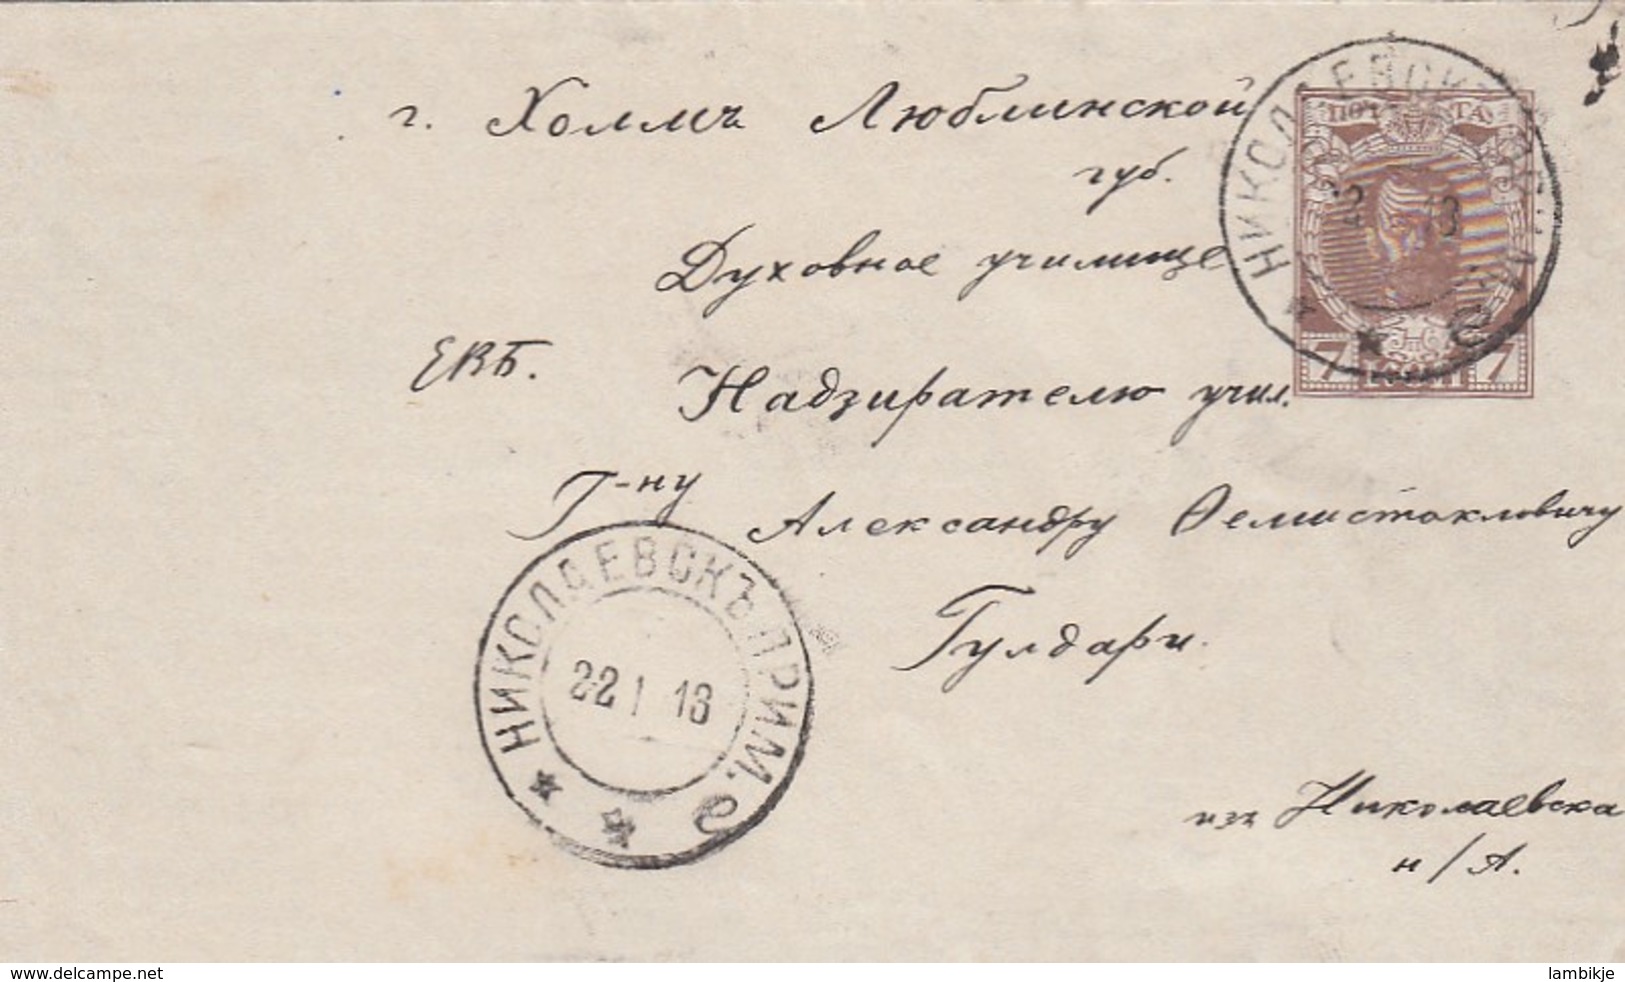 г. Холмъ Люблинской
губ.
Духовное училище
ЕВБ.
Надзирателю учил.
Г-ну Александру Ѳемистокловичу
Гулдари.
изъ Николаевска
н/А.
ПОЧТА
7 7
НИКОЛАЕВСКЪ ПРИМ.
22 I 13
НИКОЛАЕВСКЪ ПРИМ. е
22 1 13
www.delcampe.net
lambikje